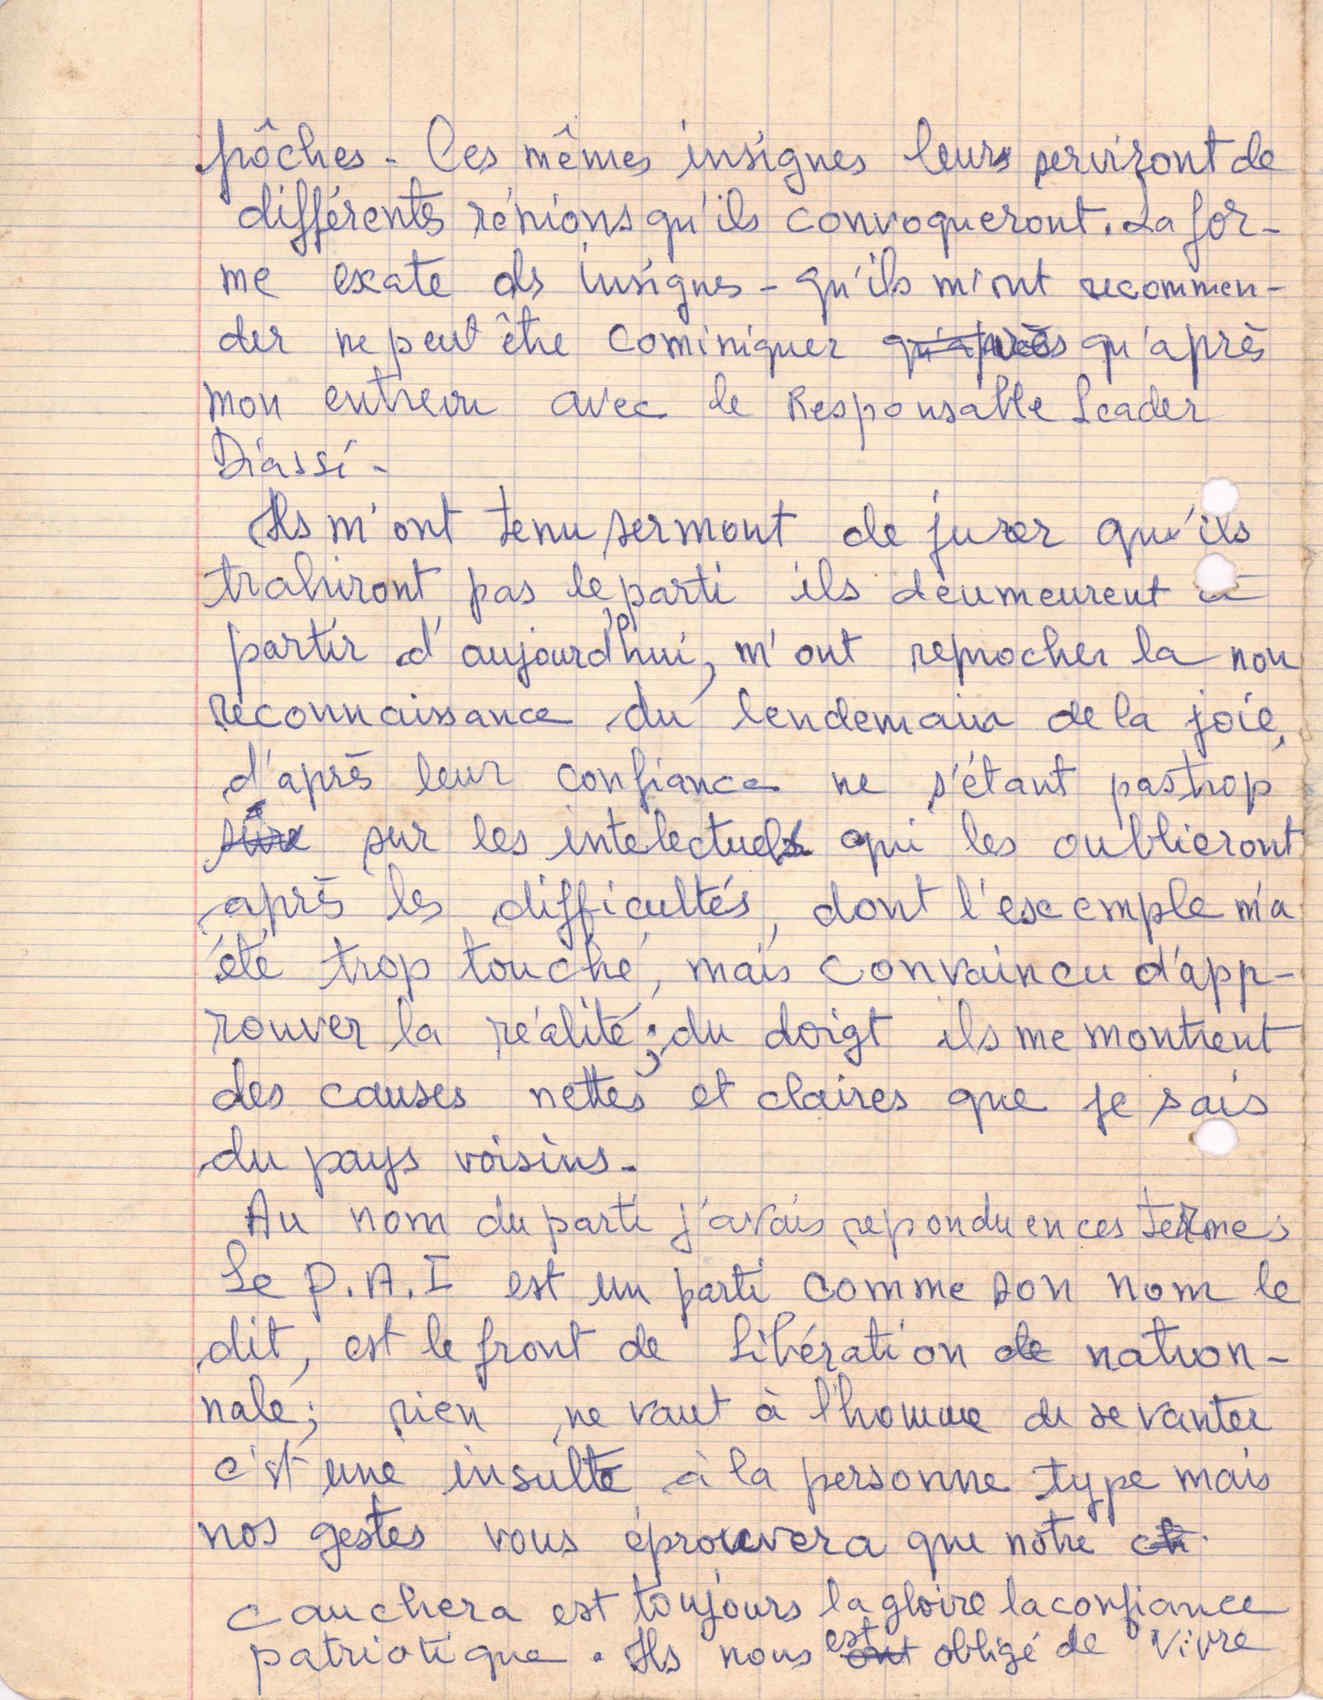 pôches - Ces mêmes insignes leurs serviront de
différents rénions qu'ils convoqueront. La for-
me exate ds insignes - qu'ils m'ont recommen-
der ne peut être cominiquer qu'après qu'après
mon entrevu avec le Responsable Leader
Diassi -
Ils m'ont tenu sermont de jurer qu'ils
trahiront pas le parti ils deumeurent
partir d'aujourd'hui, m'ont reprocher la non
reconnaissance du lendemain de la joie,
d'après leur confiance ne s'étant pas trop
sûre sur les intelectuels qui les oublieront
après les difficultés, dont l'exemple m'a
été trop touché, mais convaincu d'app-
rouver la réalité; du doigt ils me montrent
des causes nettes et claires que je sais
du pays voisins -
Au nom du parti j'avais repondu en ces termes
Le P.A.I est un parti comme son nom le
dit, est le front de Libération de nation-
nale; rien ne vaut à l'homme de se vanter
c'st une insulte à la personne type mais
nos gestes vous éprouvera que notre
cauchera est toujours la gloire la confiance
patriotique. Ils nous est ont obligé de vivre